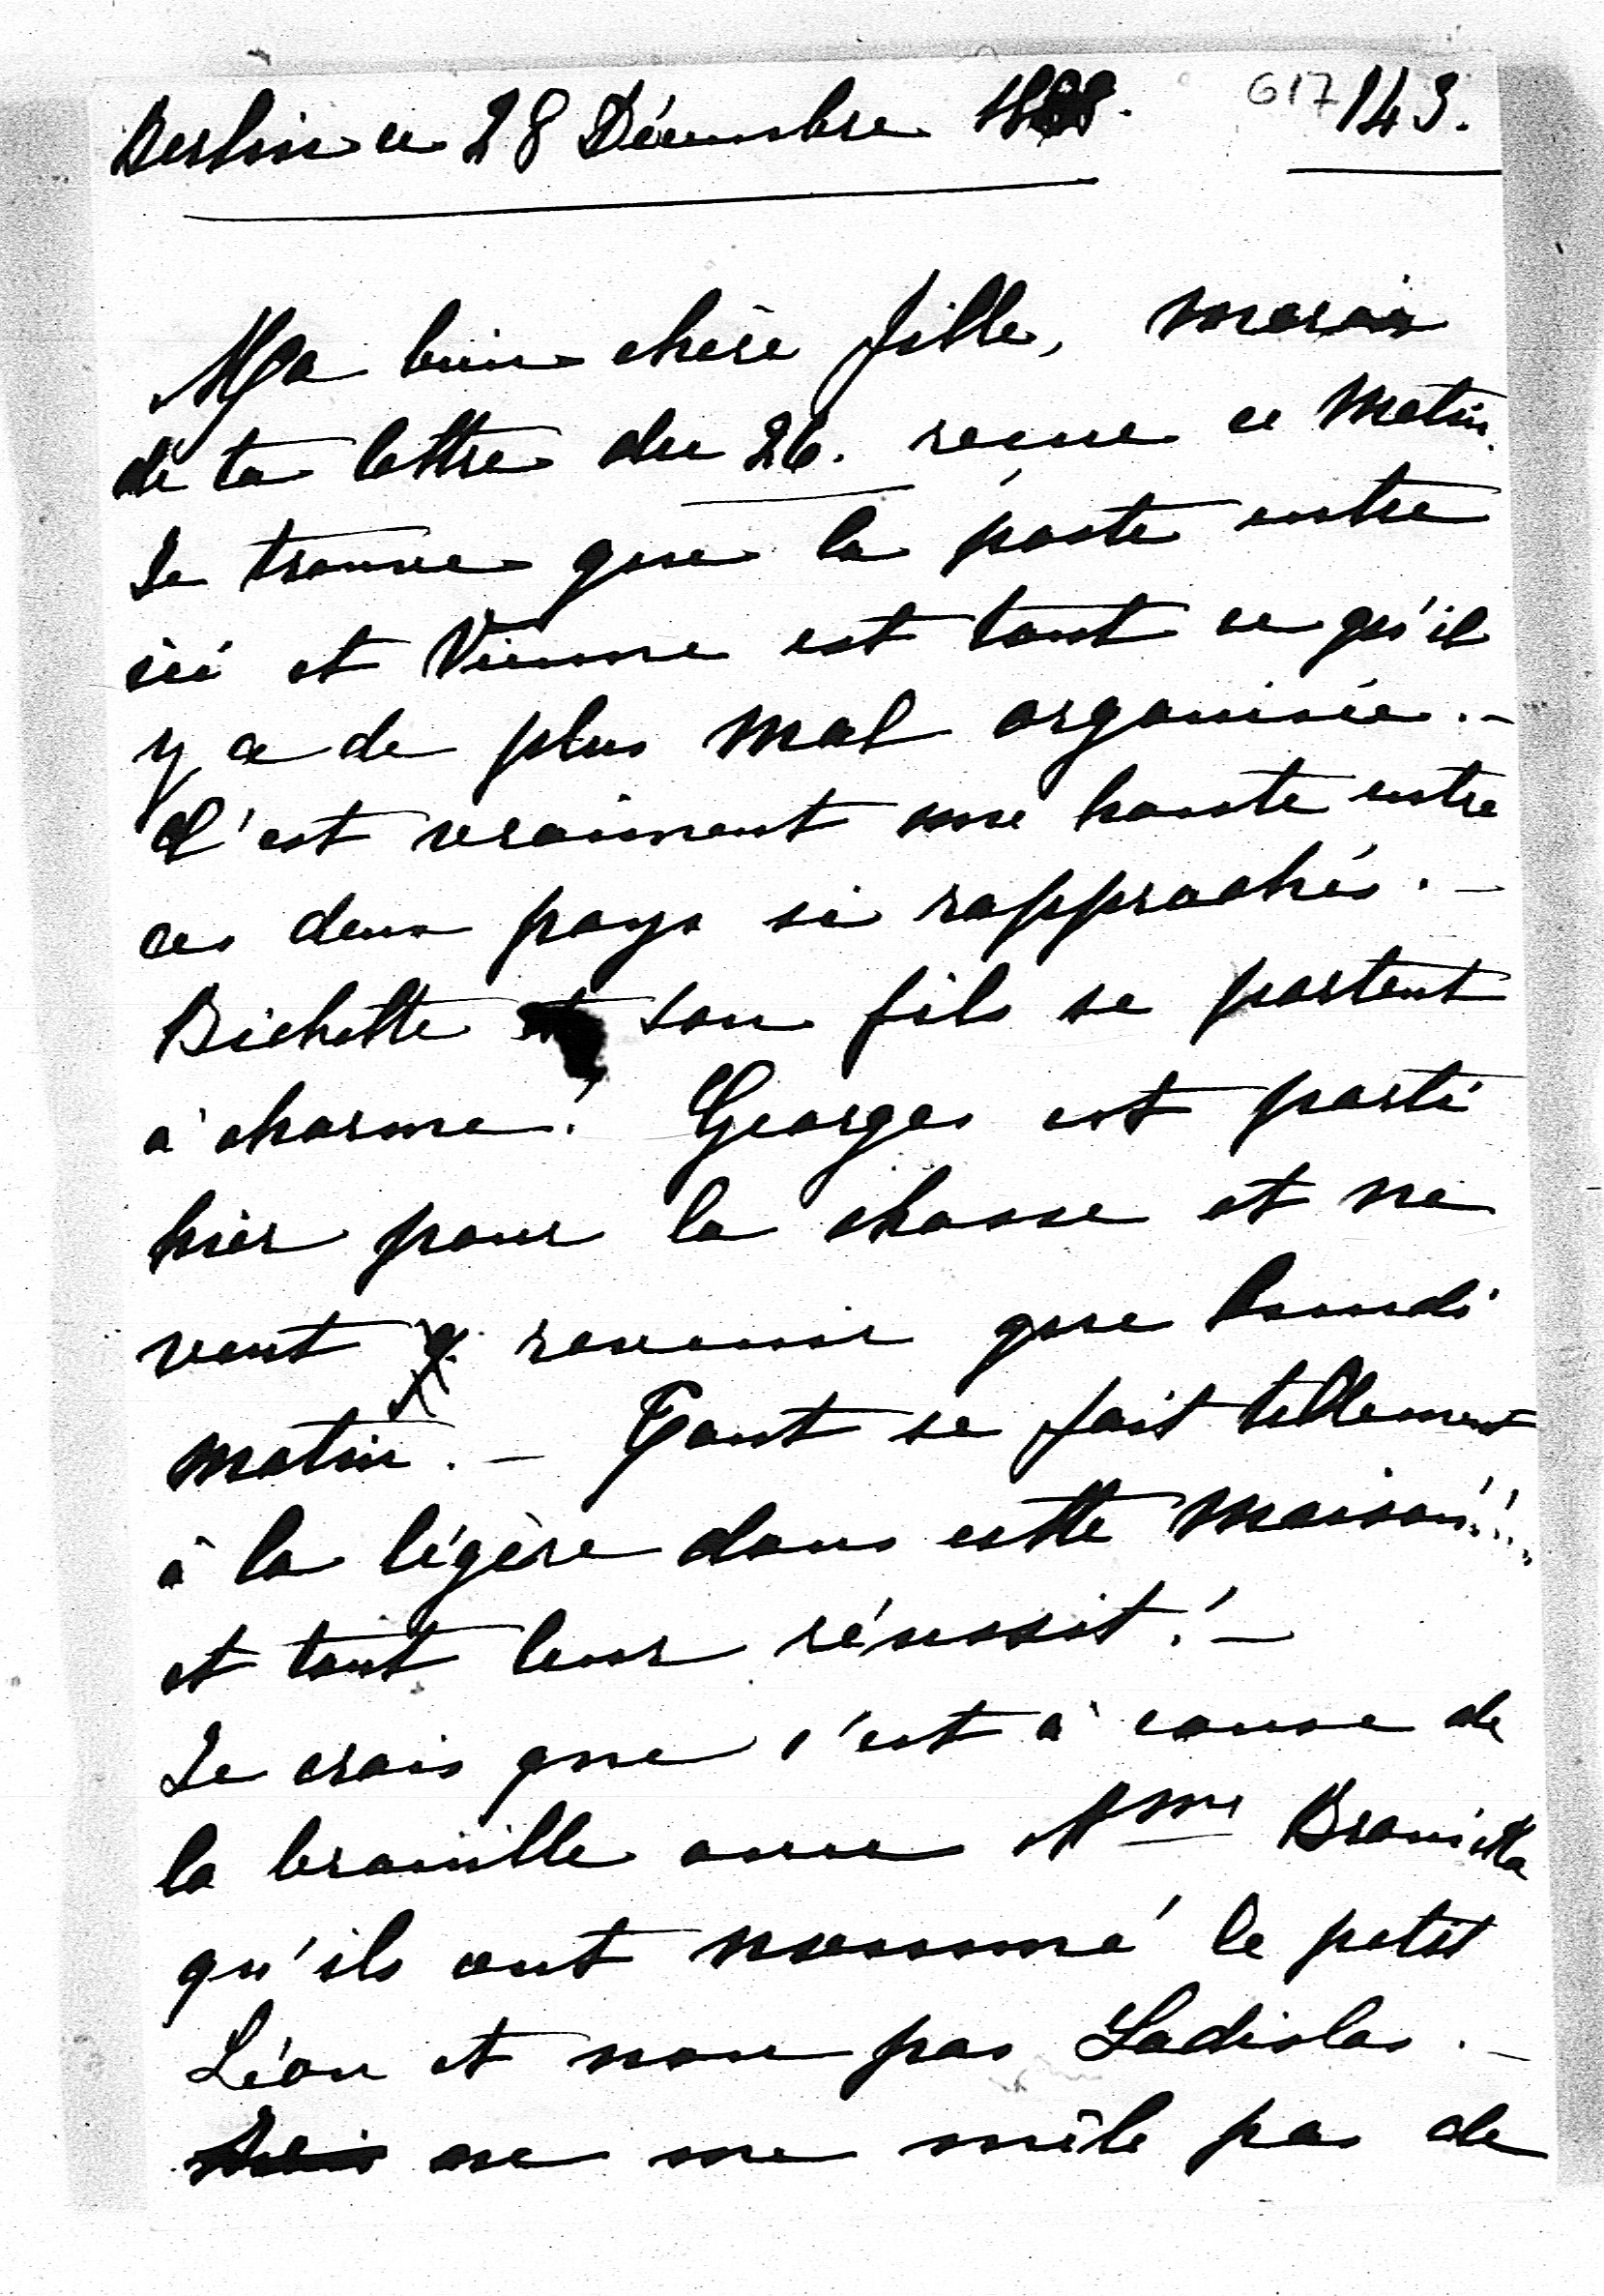 Berlin ce 28 Décembre 188
617 143.
Ma bien chère fille, merci
de ta lettre du 26. reçue ce matin.
Je trouve que la poste entre
ici et Vienne est tout ce qu'il
y a de plus mal organisée. –
C'est vraiment une honte entre
ces deux pays si rapprochés. –
Bichette et son fils se portent
à charme! Georges est parti
hier pour la chasse et ne
veut revenir que lundi
matin. – Tout se fait tellement
à la légère dans cette maison!!..
et tout leur réussit! –
Je crois que c'est à cause de
la brouille avec Mme Branicka
qu'ils ont nommé le petit
Léon et non pas Ladislas. –
ne me mêle pas de